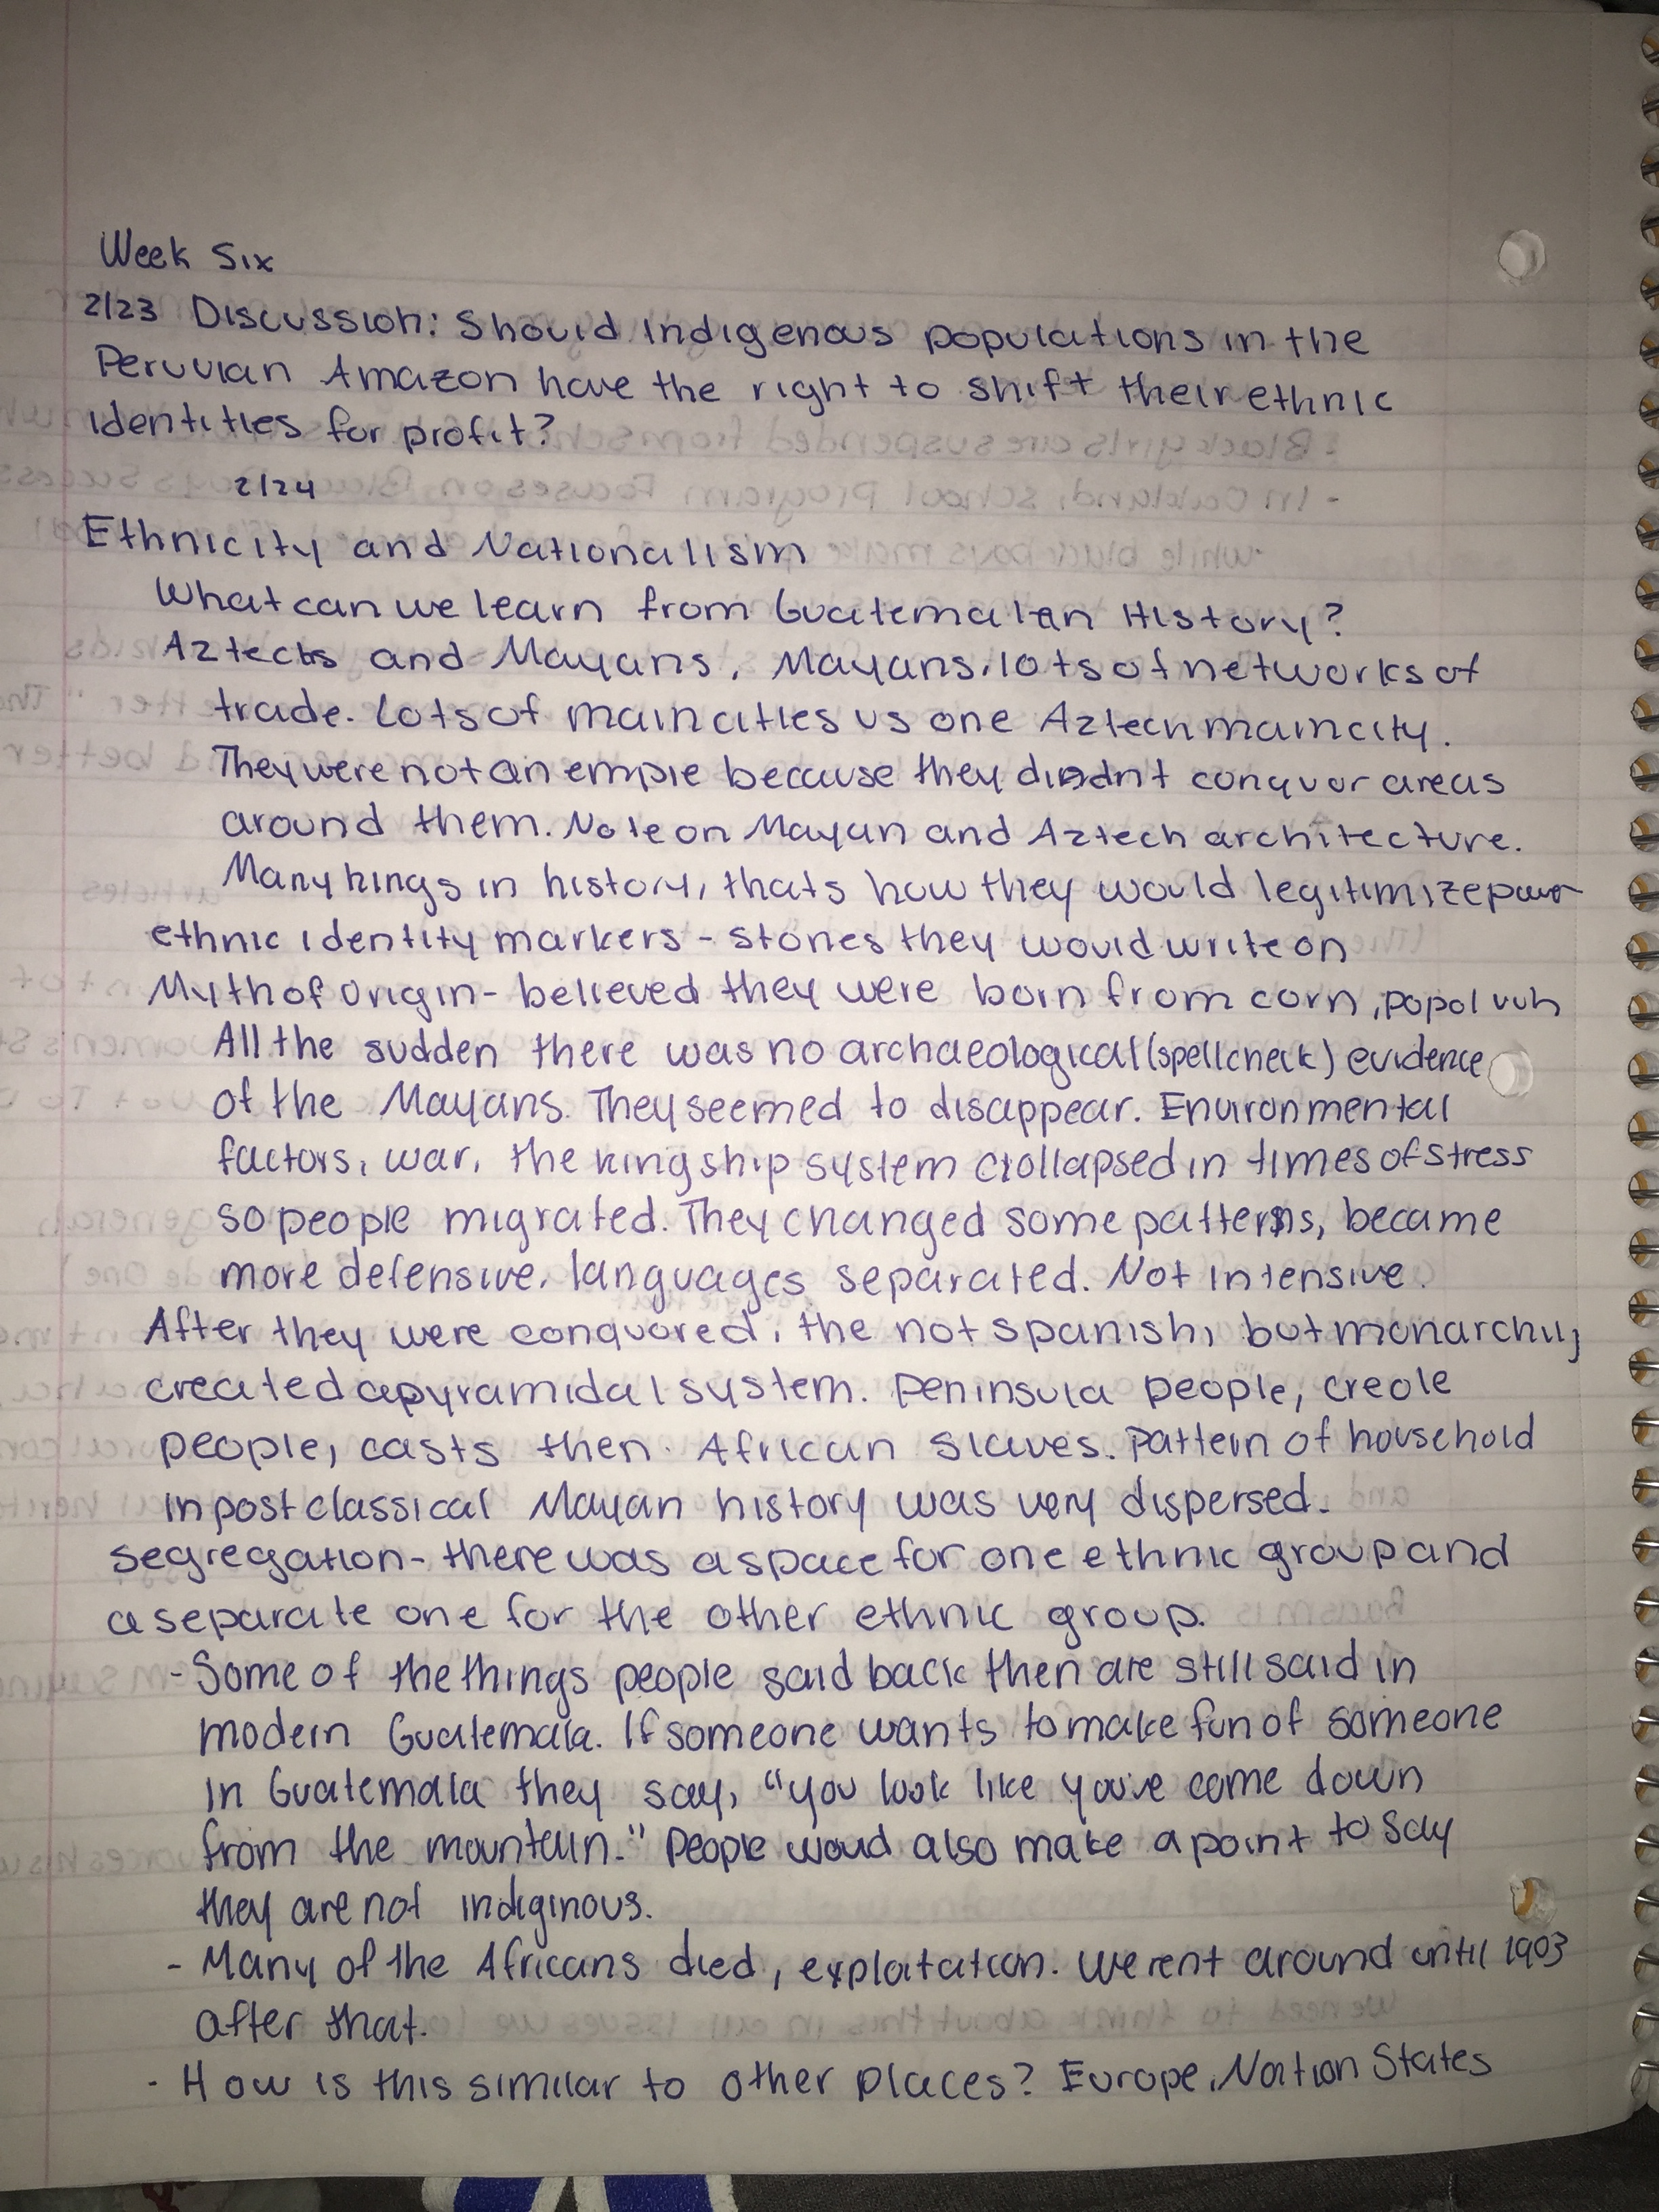 Week Six
2/23 Discussion: Should Indigenous populations in the
Peruvian Amazon have the right to shift their ethnic
identities for profit?
2/24
Ethnicity and Nationalism
What can we learn from Guatemalan History?
Aztechs and Mayans, Mayans, lots of networks of
trade. Lots of main cities vs one Aztech main city.
They were not an empie because they didnt conquor areas
around them. Note on Mayan and Aztech architecture.
Many kings in history, thats how they would legitimize power
ethnic identity markers - stones they would write on
Myth of origin - believed they were born from corn, popol vuh
All the sudden there was no archaeological (spellcheck) evidence
of the Mayans. They seemed to disappear. Environmental
factors, war, the kingship system collapsed in times of stress
so people migrated. They changed some patterns, became
more defensive, languages separated. Not intensive.
After they were conquored, the not spanish, but monarchy,
created a pyramidal system. Peninsula people, creole
people, casts then African slaves. Pattern of household
in post classical Mayan history was very dispersed.
segregation - there was a space for one ethnic group and
a separate one for the other ethnic group.
- Some of the things people said back then are still said in
modern Guatemala. If someone wants to make fun of someone
in Guatemala they say, "you look like you've come down
from the mountain." People would also make a point to say
they are not indiginous.
- Many of the Africans died, exploitation. Werent around until 1903
after that.
- How is this similar to other places? Europe, Nation States